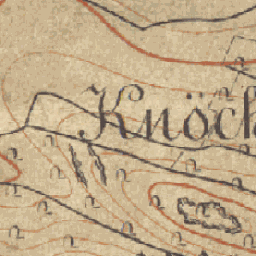 Knöck